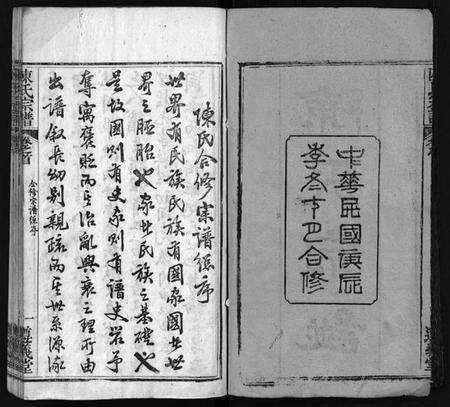 中華民國庚辰
季冬下巳合修
陳氏合修宗譜總序
世界有民族民族有國家國也世
界之胚胎也家也民族之基礎也
是故國則有史家則有譜史寓予
奪寓褒貶而其治亂興衰之理所由
出譜敘長幼別親疏而其世系源流
陳氏宗譜
卷之首
合修宗譜總序
一